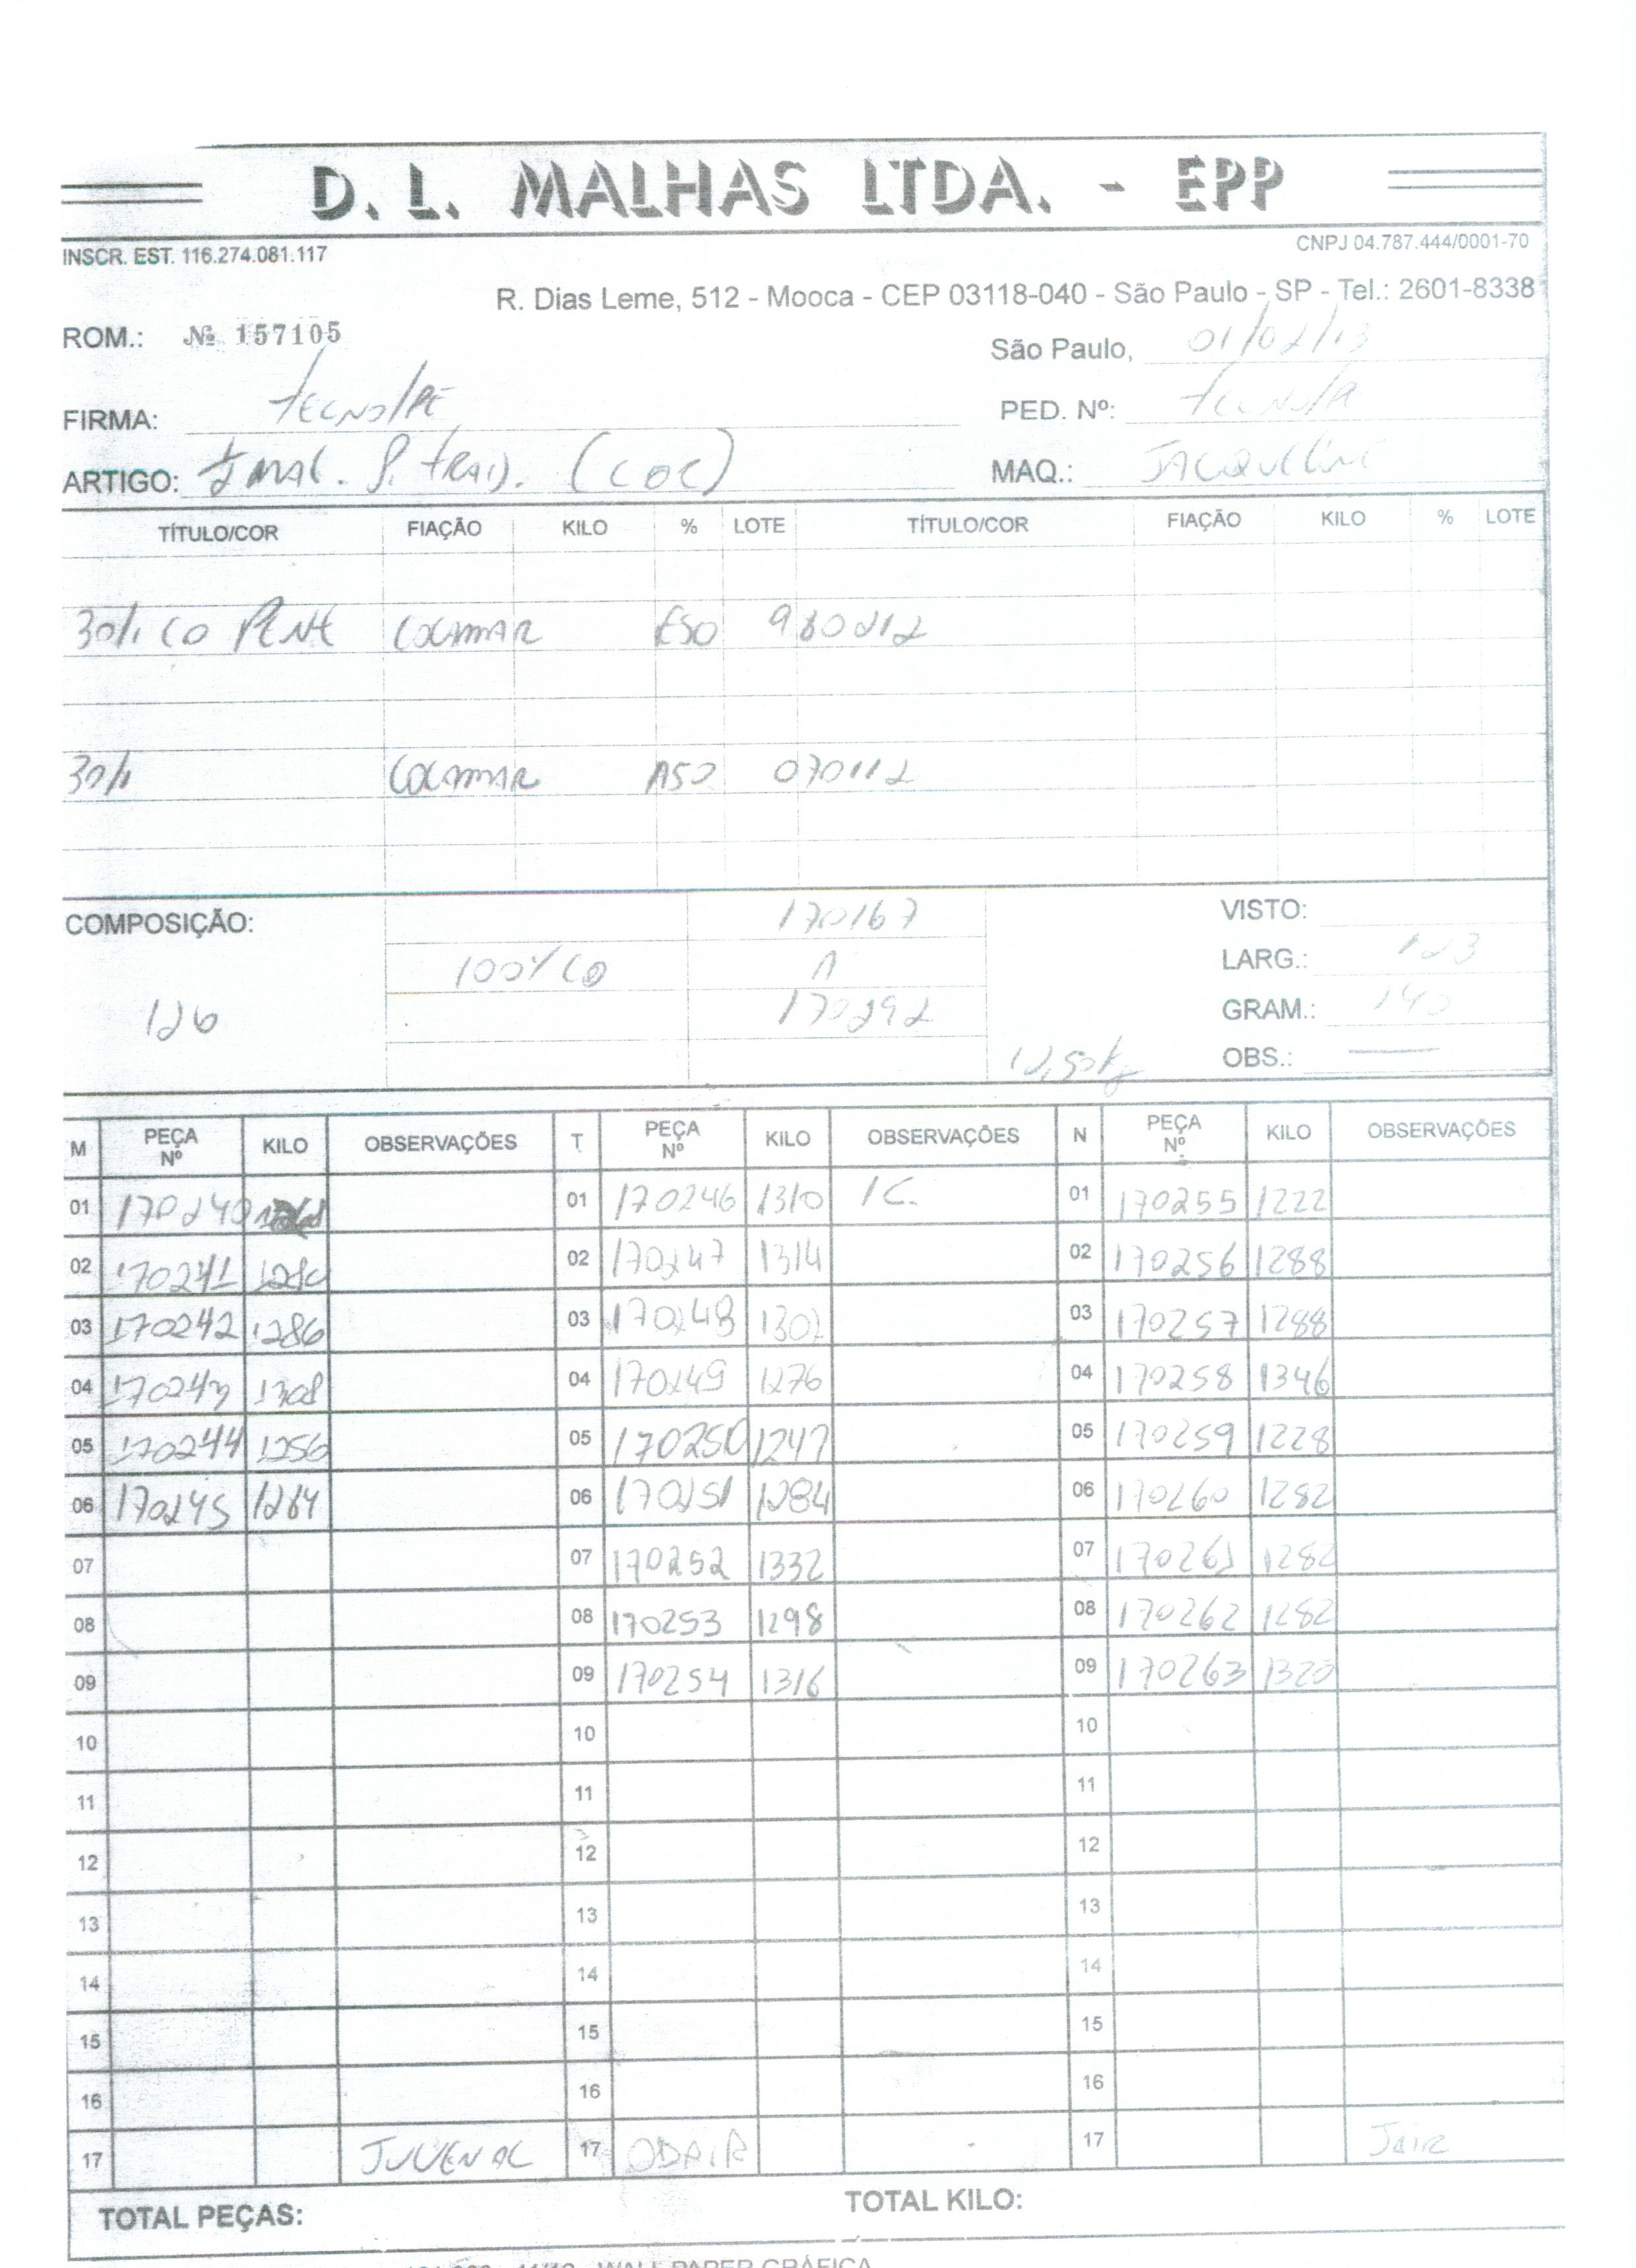 D. L. MALHAS LTDA. - EPP
INSCR. EST. 116.274.081.117 CNPJ 04.787.444/0001-70
R. Dias Leme, 512 - Mooca - CEP 03118-040 - São Paulo - SP - Tel.: 2601-8338
ROM.: Nº 157105 São Paulo, 01/02/13
FIRMA: PED. Nº:
ARTIGO: MAQ.: JACQUELINE
TÍTULO/COR FIAÇÃO KILO % LOTE TÍTULO/COR FIAÇÃO KILO % LOTE
30/1 CO PENT COCAMAR 980212
30/1 COCAMAR 070112
COMPOSIÇÃO: 170167 VISTO:
100% CO A LARG.: 123
126 170292 GRAM.: 140
12,50kg OBS.: —
M PEÇA Nº KILO OBSERVAÇÕES T PEÇA Nº KILO OBSERVAÇÕES N PEÇA Nº KILO OBSERVAÇÕES
01 170240 01 170246 1310 1C. 01 170255 1222
02 170241 02 170247 1314 02 170256 1288
03 170242 1286 03 170248 1302 03 170257 1288
04 170243 1308 04 170249 1276 04 170258 1346
05 170244 1256 05 170250 05 170259 1228
06 170245 1264 06 170251 1284 06 170260 1282
07 07 170252 1332 07 170261 1282
08 08 170253 1298 08 170262 1282
09 09 170254 1316 09 170263 1320
10 10 10
11 11 11
12 12 12
13 13 13
14 14 14
15 15 15
16 16 16
17 JUVENAL 17 ODAIR 17 JAIR
TOTAL PEÇAS: TOTAL KILO:
WALL PAPER GRÁFICA